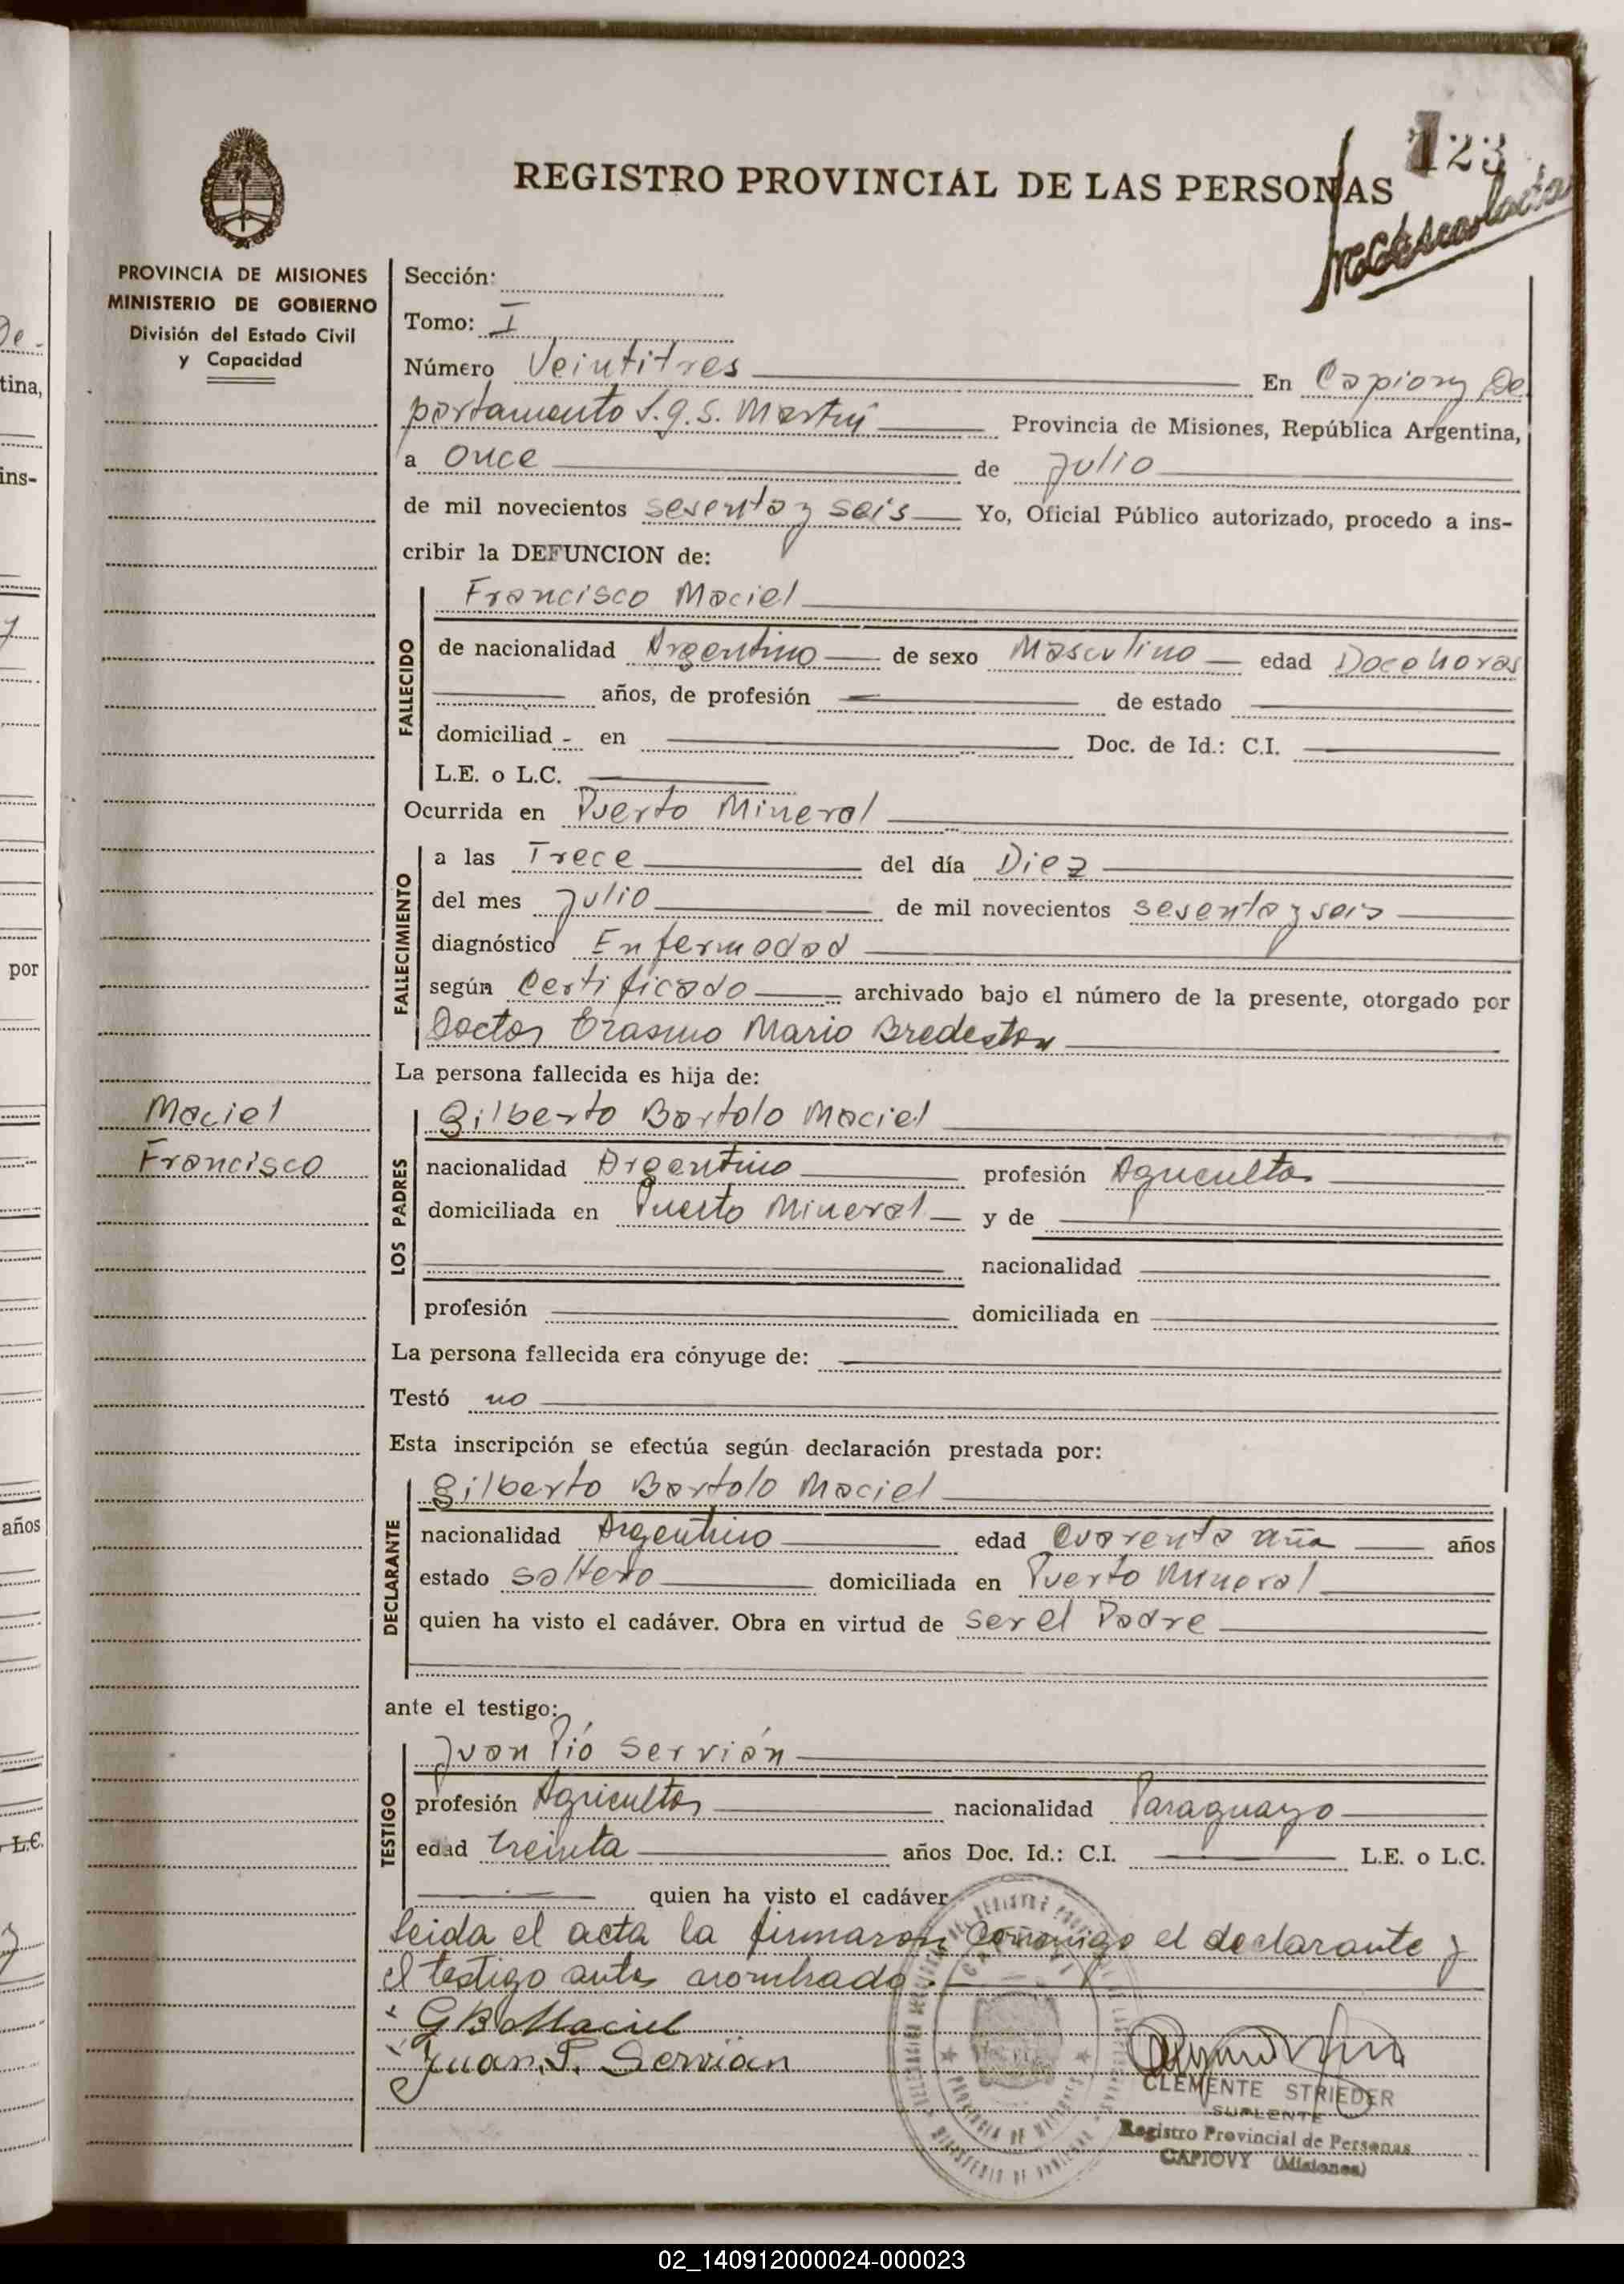 123
REGISTRO PROVINCIAL DE LAS PERSONAS
PROVINCIA DE MISIONES
MINISTERIO DE GOBIERNO
División del Estado Civil
y Capacidad
Sección:
Tomo: I
Número Veintitres En Capiovy De
partamento L.g.S. Martin Provincia de Misiones, República Argentina,
a Once de Julio
de mil novecientos sesenta y seis Yo, Oficial Público autorizado, procedo a ins-
cribir la DEFUNCION de:
Francisco Maciel
FALLECIDO
de nacionalidad Argentino de sexo Masculino edad Doce horas
años, de profesión de estado
domiciliad - en Doc. de Id.: C.I.
L.E. o L.C.
Ocurrida en Puerto Mineral
FALLECIMIENTO
a las Trece del día Diez
del mes Julio de mil novecientos sesenta y seis
diagnóstico Enfermedad
según Certificado archivado bajo el número de la presente, otorgado por
Doctor Erasmo Mario Bredeston
La persona fallecida es hija de:
Maciel
Francisco
LOS PADRES
Gilberto Bartolo Maciel
nacionalidad Argentino profesión Agricultor
domiciliada en Puerto Mineral y de
nacionalidad
profesión domiciliada en
La persona fallecida era cónyuge de:
Testó no
Esta inscripción se efectúa según declaración prestada por:
DECLARANTE
Gilberto Bartolo Maciel
nacionalidad Argentino edad Cuarenta años
estado soltero domiciliada en Puerto Mineral
quien ha visto el cadáver. Obra en virtud de ser el Padre
ante el testigo:
TESTIGO
Juan Pío Servián
profesión Agricultor nacionalidad Paraguayo
edad treinta años Doc. Id.: C.I. L.E. o L.C.
quien ha visto el cadáver
leida el acta la firmaron conmigo el declarante y
el testigo antes nombrado.
G B Maciel
Juan P. Servian
CLEMENTE STRIEDER
SUPLENTE
Registro Provincial de Personas
CAPIOVY (Misiones)
02_140912000024-000023